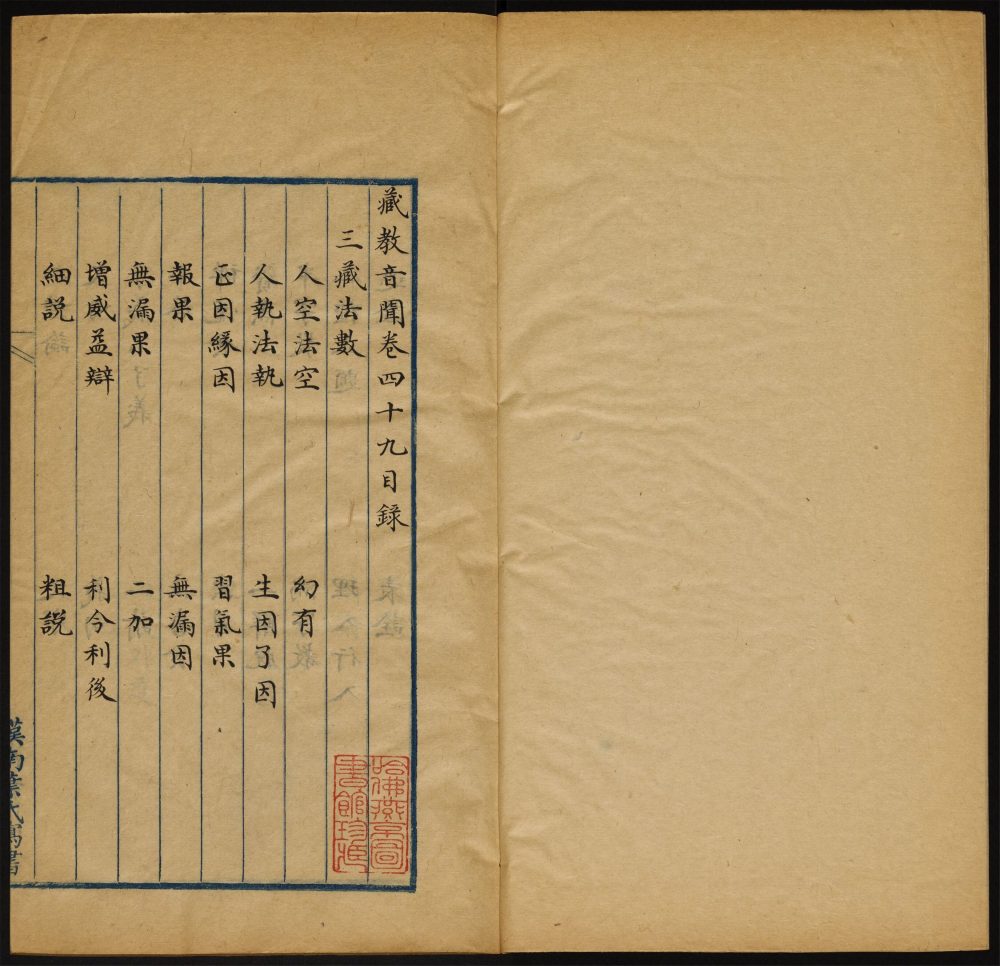 藏教音聞卷四十九目錄
三藏法數
人空法空　幻有
人執法執　生因了因
正因緣因　習氣果
報果　無漏因
無漏果　二加
增威益辯　利今利後
細説　粗説
漢南葉氏寫書
哈佛燕京圖
書館珍藏